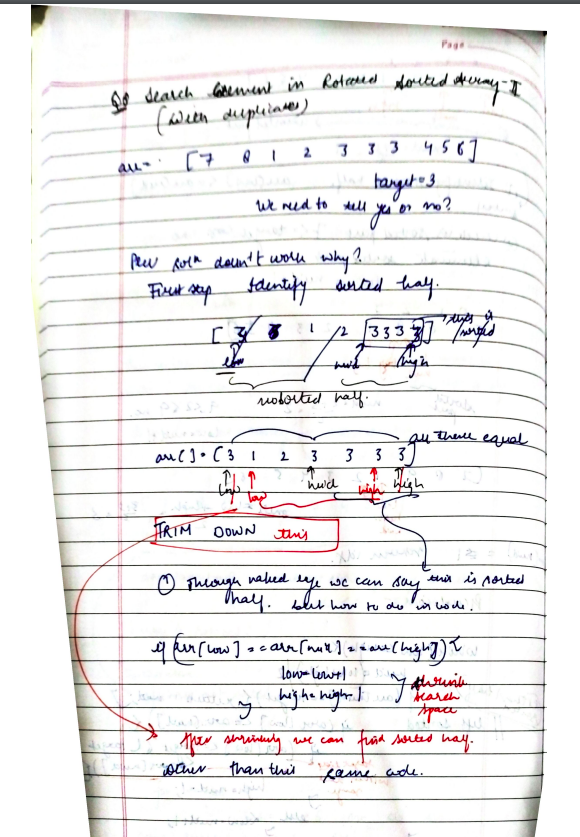 Page
Q8 Search Element in Rotated Sorted Array-II
(with duplicates)
arr = [7 8 1 2 3 3 3 4 5 6]
target = 3
We need to tell yes or no?
Prev soln doesn't work why?
First step Identify sorted half.
[ 3 1 2 3 3 3 3 ] this is sorted
low mid high
unsorted half.
all these equal
arr[ ] = [ 3 1 2 3 3 3 3 ]
low low mid high high
TRIM DOWN this
① Through naked eye we can say this is sorted
half. but how to do in code.
if (arr[low] == arr[mid] == arr[high]) {
low = low+1
high = high-1
} shrink
search
space
After shrinking we can find sorted half.
other than this same code.